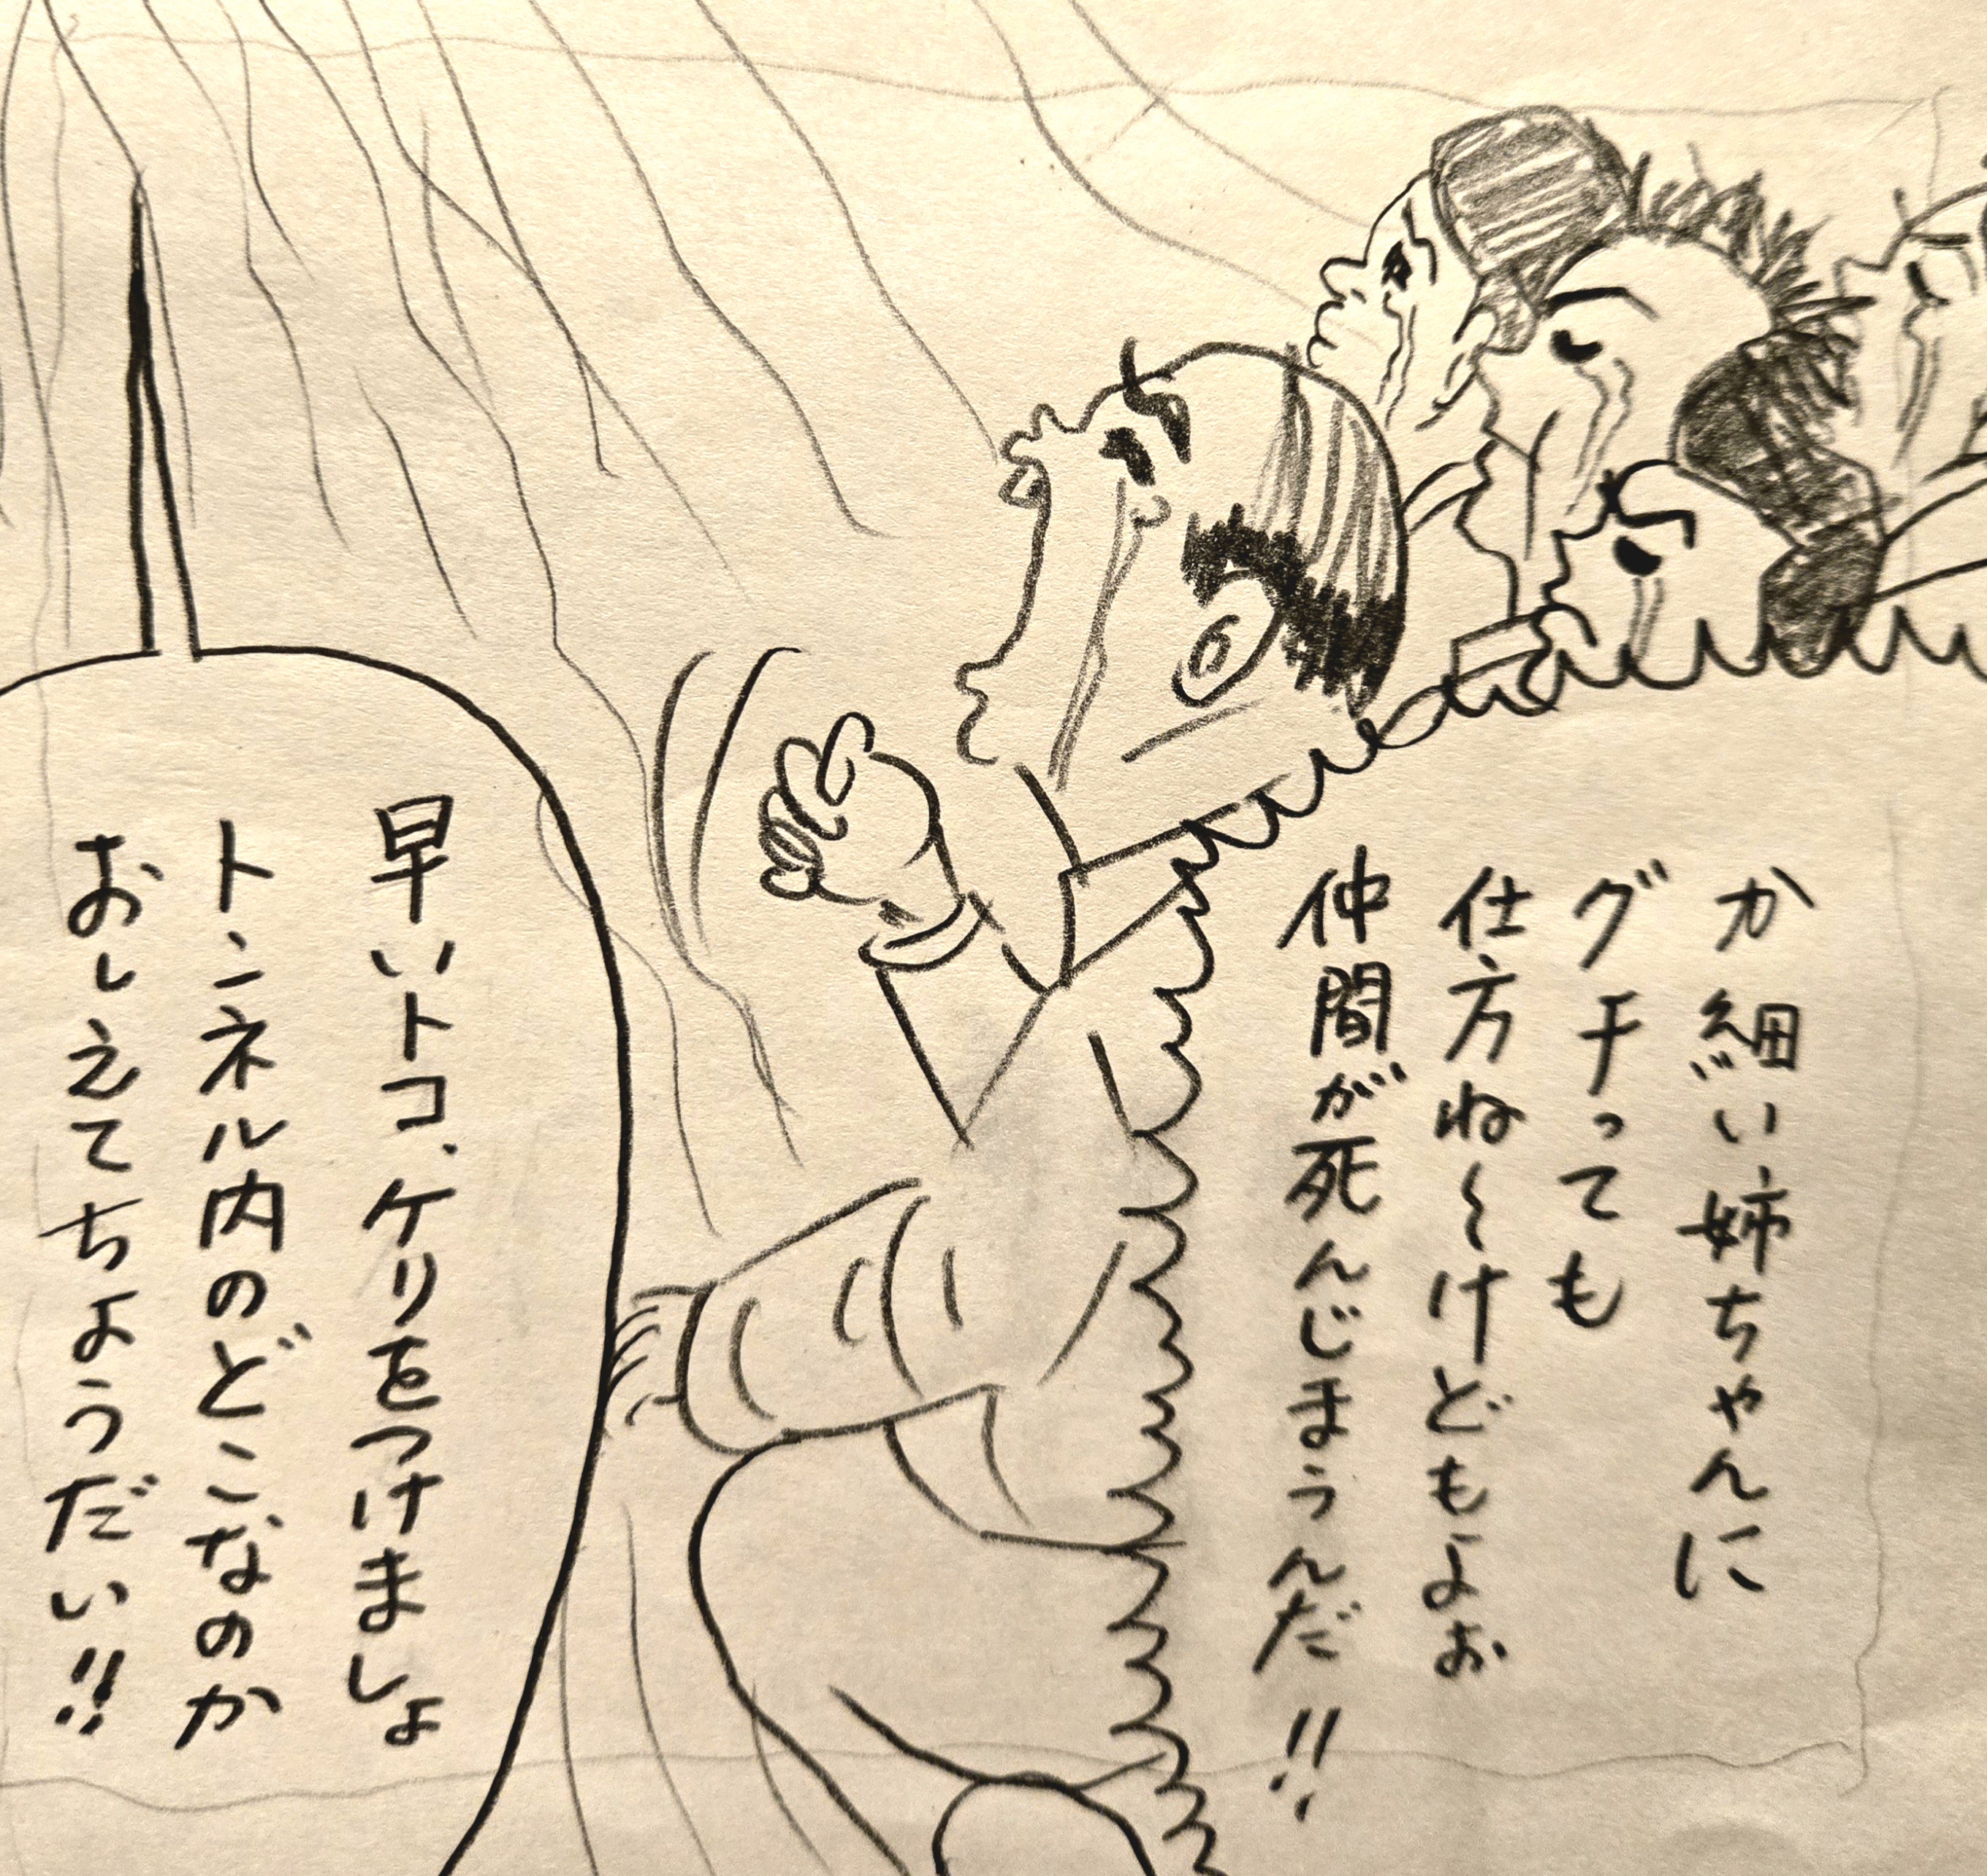 か細い姉ちゃんに
グチっても
仕方ね～けどもよぉ
仲間が死んじまうんだ!!
早いトコ、ケリをつけましょ
トンネル内のどこなのか
おしえてちょうだい!!